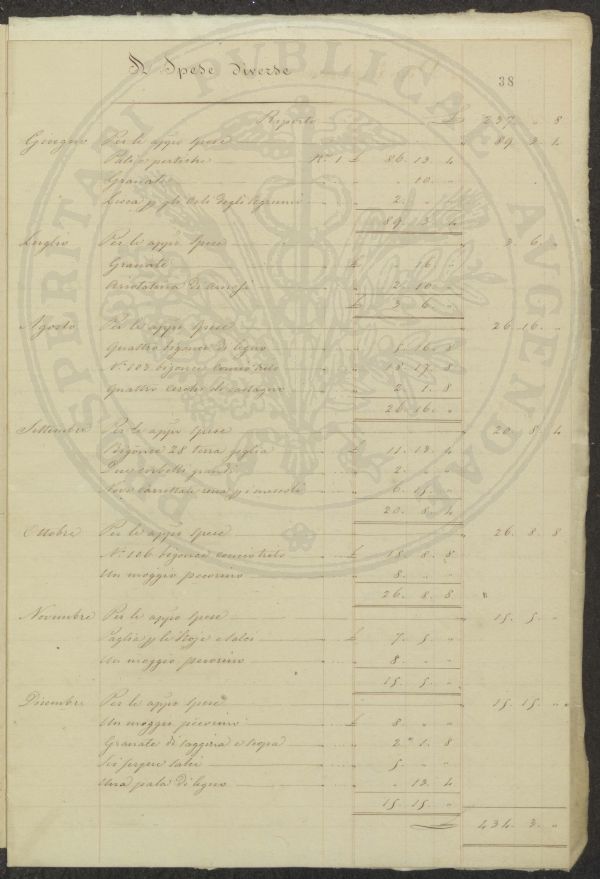 A Spese diverse
38
Riporto £ 237. " 8
Giugno Per le appo spese " 89. 3. 4
Pali e pertiche N.° 1 £ 86. 13. 4
Granate " " 10. "
" 2. " "
89. 3. 4
Luglio Per le appo spese " 3. 6. "
Granate £ " 16. "
Arrotatura di arnesi " 2. 10. "
£ 3. 6. "
Agosto Per le appo spese " 26. 16. "
Quattro bigonce di legno " 5. 16. 8
N.° 103 bigonce " 18. 17. 8
Quattro cerchi di castagno " 2. 1. 8
26. 16. "
Settembre Per le appo spese " 20. 8. 4
Bigonce 28 terra foglia £ 11. 13. 4
Due corbelli grandi " 2. " "
Nove carrettate rena " 6. 15. "
20. 8. 4
Ottobre Per le appo spese " 26. 8. 8
N.° 106 bigonce £ 18. 8. 8
Un moggio pecorino " 8. " "
26. 8. 8
Novembre Per le appo spese " 15. 5. "
Paglia p le stoje e salci £ 7. 5. "
Un moggio pecorino " 8. " "
15. 5. "
Dicembre Per le appo spese " 15. 15. "
Un moggio pecorino £ 8. " "
Granate di saggina e scopa " 2. 1. 8
salci " 5. " "
Una pala di legno " " 13. 4
15. 15. "
£ 434. 3. "
PROSPERITATI PUBLICAE AVGENDAE